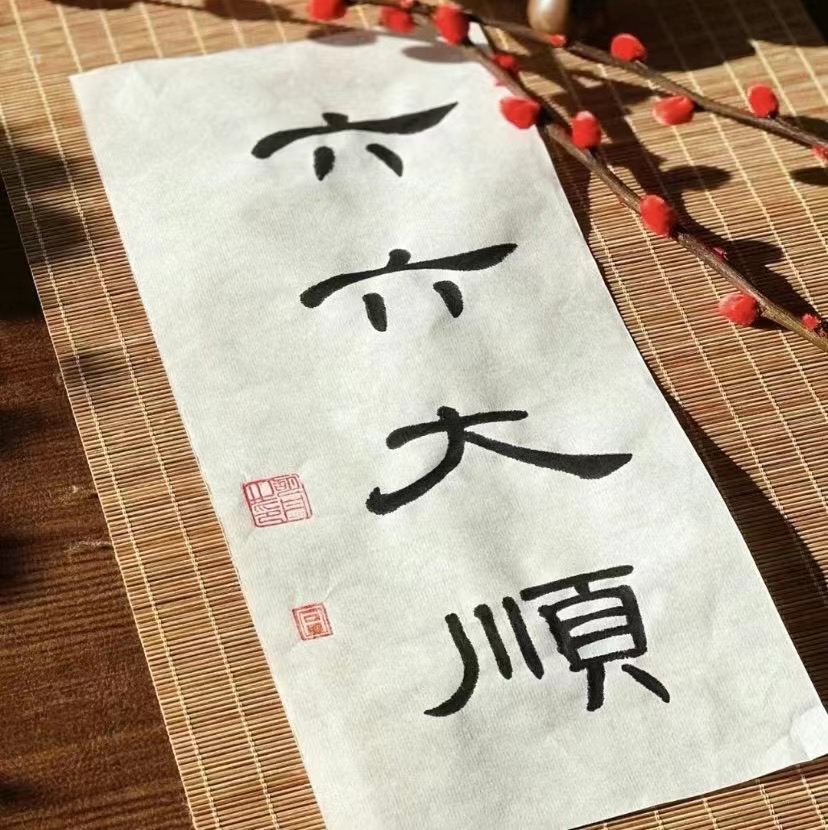 六六大順